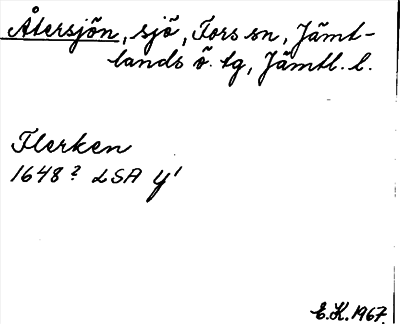 Återsjön, sjö, Fors sn, Jämt-
lands ö. tg, Jämtl. l.
Flerken
1648? LSA Y¹
E.K. 1967.